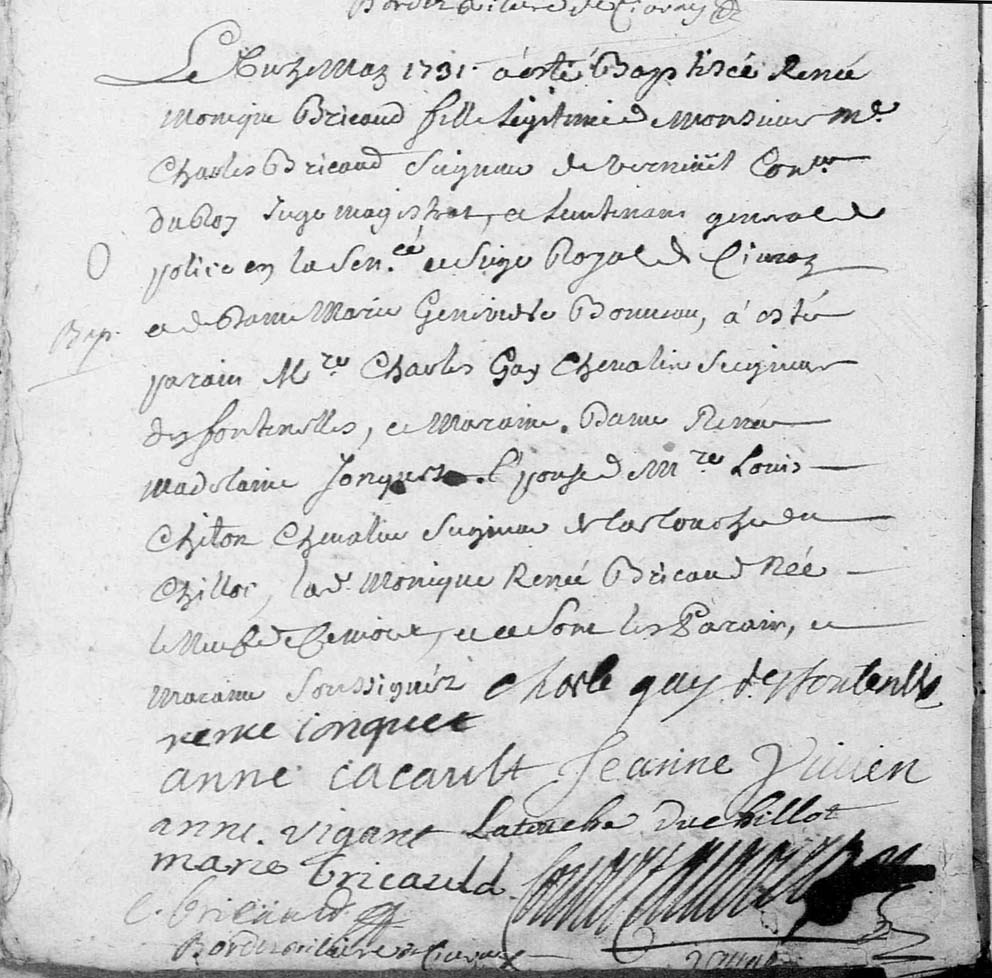 Border vicaire de Civray
Le huit May 1731 a esté Baptiséé Renée
Monique Bricaud fille Legitime de Monsieur Me.
Charles Bricaud Seigneur de Verneüil Coner
du Roy Juge magistrat, et Lieutenant general de
police en la Sen.cé et Siege Royal de Civray
Bap.
et de Dame Marie Genevieve Bonneau, a esté
parain Mre Charles Gay Chevalier Seigneur
des fontenelles, et Maraine. Dame Renée
Madelaine Jonquet L'epouse de Mre Louis
Chiton Chevalier Seigneur de la touche du
Chilloc, lad. Monique Renée Bricaud Née
le et se sont les Parain, et
Maraine Soussignéz charle gay desfontenelles
renee ionquet
anne cacault Jeanne Vivien
anne. vigant Latouche Duchillot
marie bricauld
C. bricaud
Border vicaire de Civray